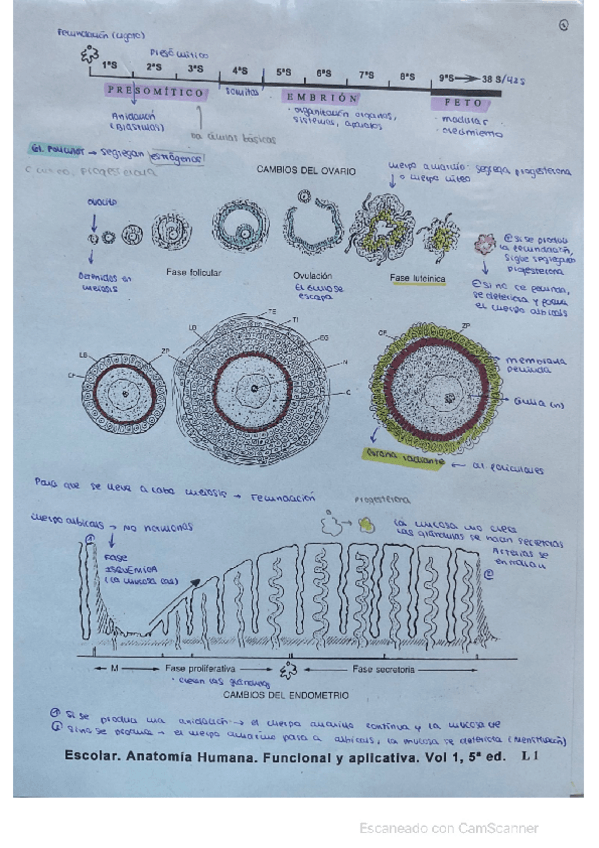 Fecundación (cigoto)
Presomítico
1ªS 2ªS 3ªS 4ªS 5ªS 6ªS 7ªS 8ªS 9ªS 38 S/42S
PRESOMÍTICO
Somitas
EMBRIÓN
FETO
Anidación
(Blástula)
· organización órganos,
sistemas, aparatos
· madurar
· crecimiento
básicas
segregan estrógenos
CAMBIOS DEL OVARIO
cuerpo amarillo: segrega progesterona
o cuerpo lúteo
ovocito
Detenidos en
meiosis
Fase folicular
Ovulación
El óvulo se
escapa
Fase luteínica
si se produce
la fecundación,
sigue segregando
progesterona
si no se fecunda,
se deteriora y forma
el cuerpo albicans
TE
TI
LB
EG
ZP
N
C
LB
CP
CP
ZP
membrana
pelúcida
(n)
Corona radiante
Para que se lleve a cabo meiosis → Fecundación
progesterona
cuerpo albicans → No hormonas
La mucosa no crece
Las glándulas se hacen secretoras
Arterias se
enrollan
FASE
ISQUÉMICA
(La mucosa cae)
M
Fase proliferativa
Fase secretoria
· crecen las glándulas
CAMBIOS DEL ENDOMETRIO
Si se produce una anidación → el cuerpo amarillo continúa y la mucosa
Si no se produce → el cuerpo amarillo pasa a albicans, la mucosa se deteriora (menstruación)
Escolar. Anatomía Humana. Funcional y aplicativa. Vol 1, 5ª ed. L 1
Escaneado con CamScanner